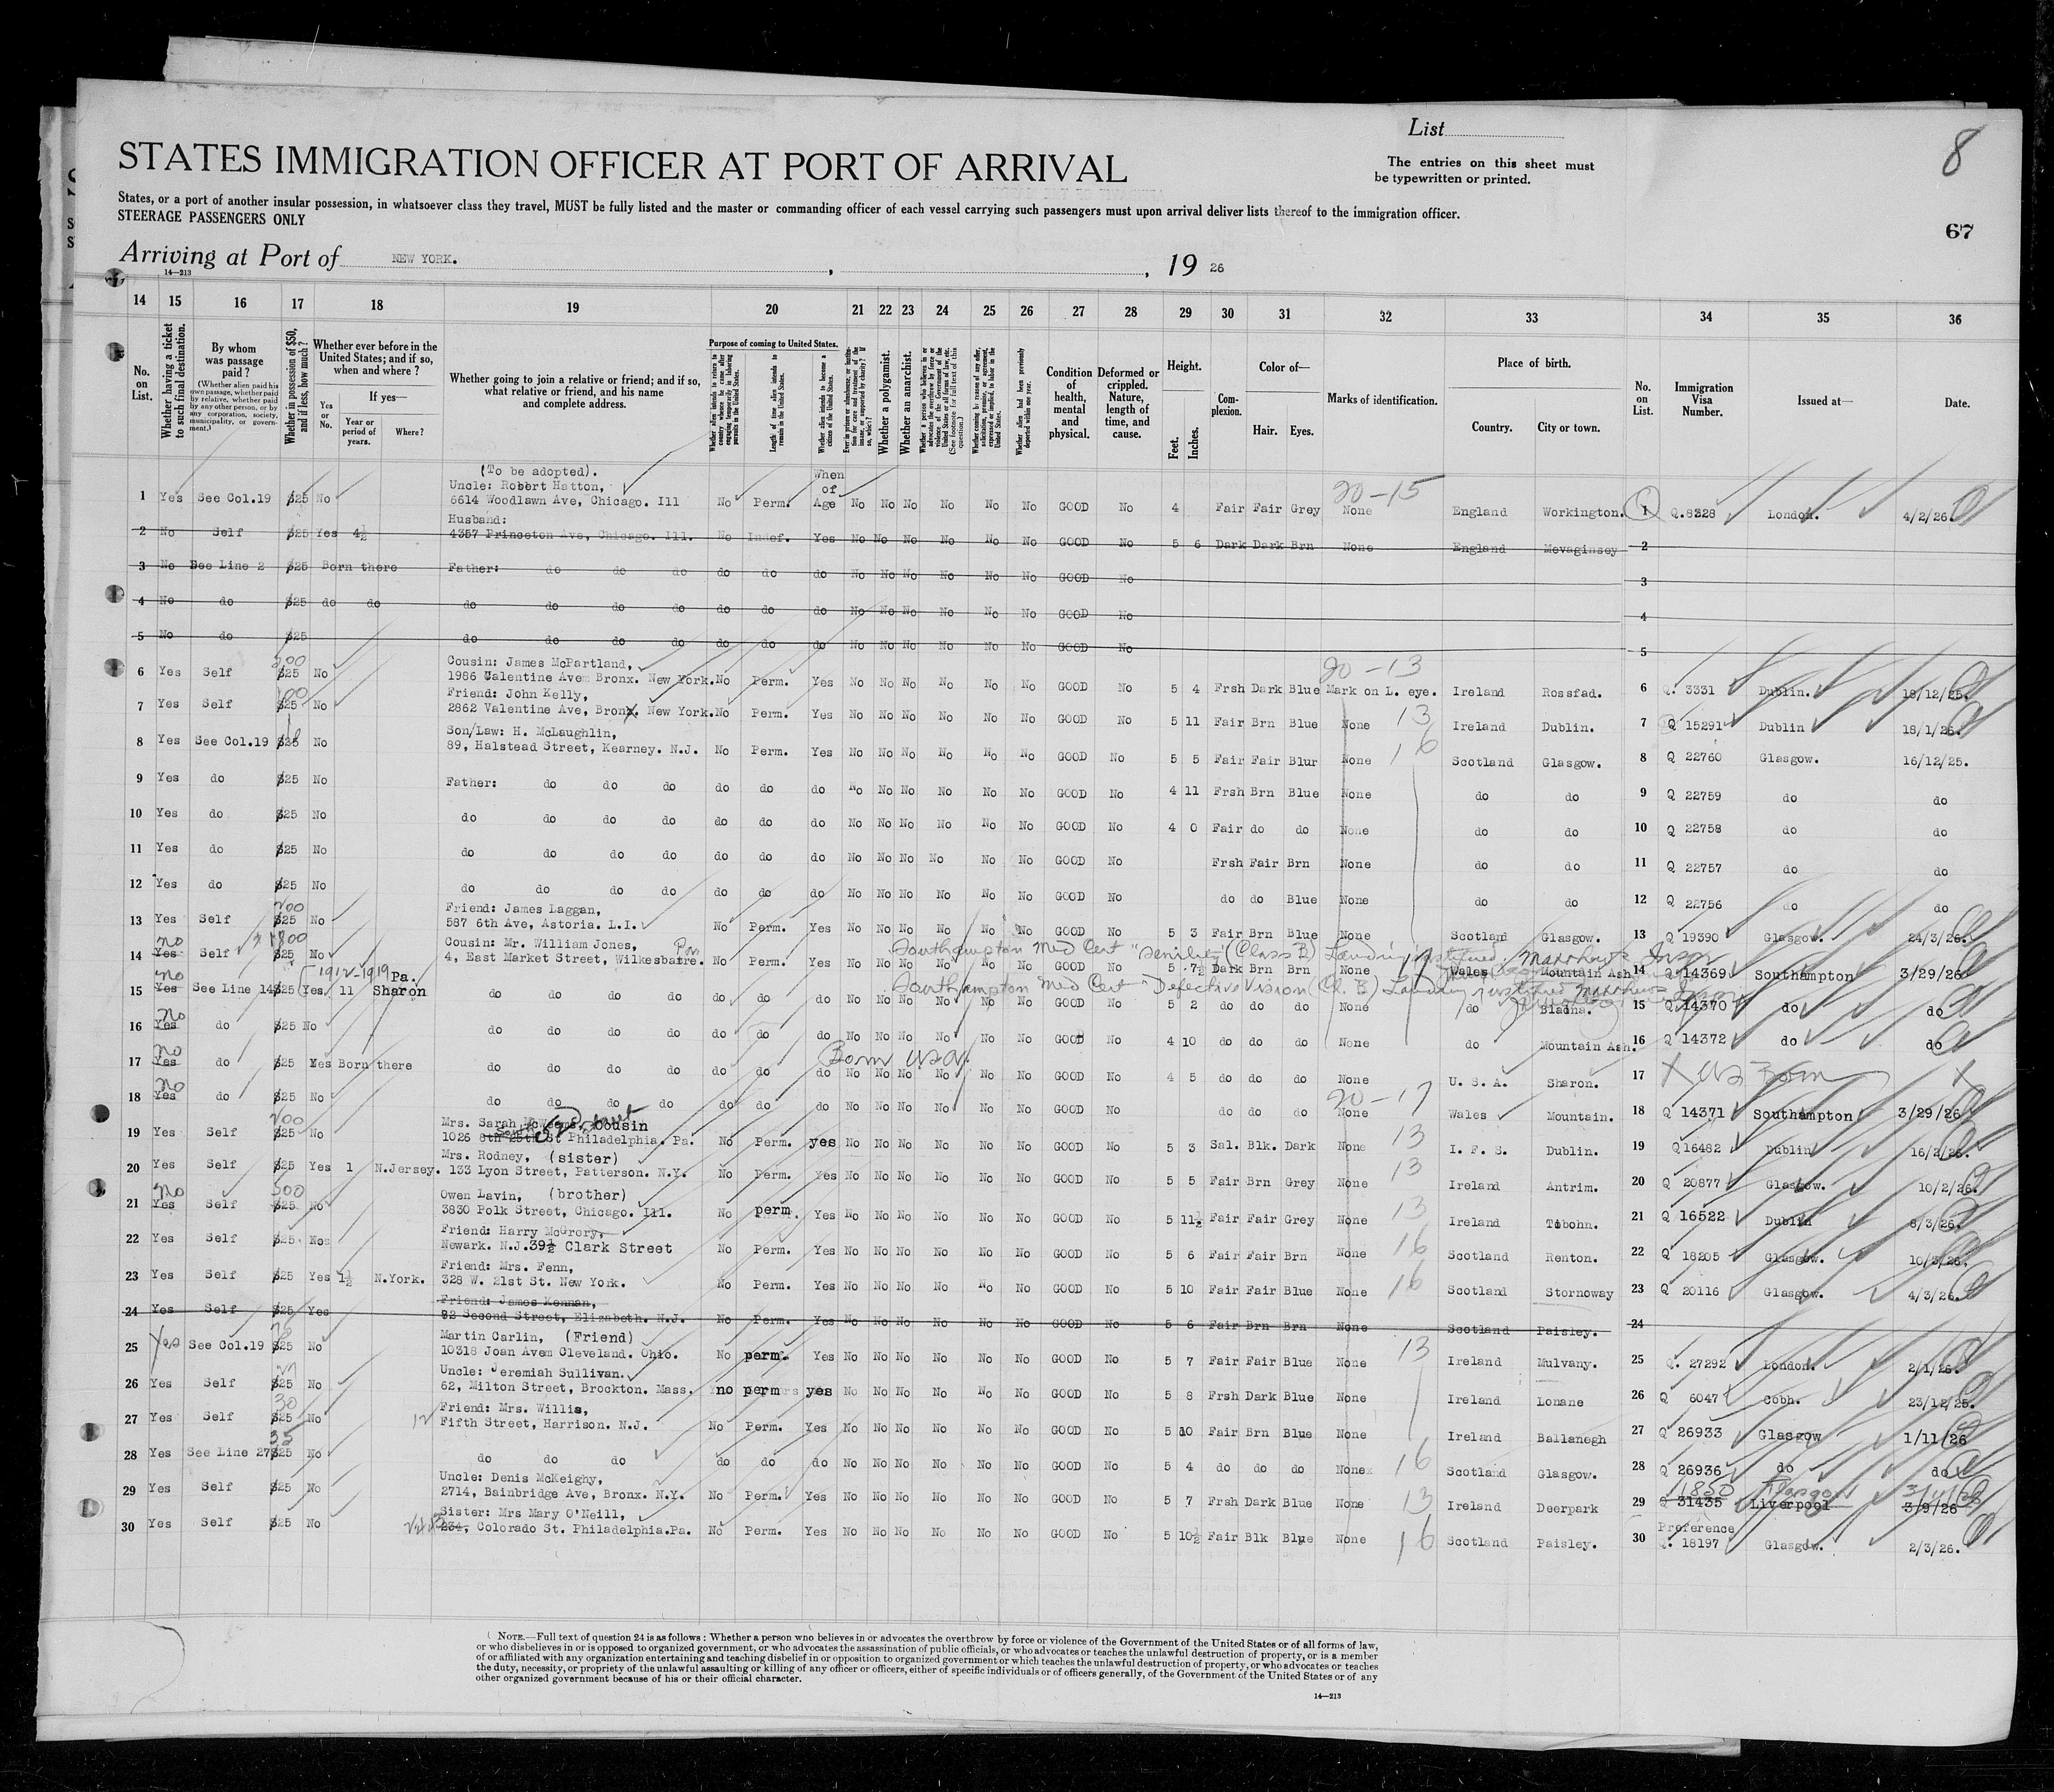 List
8
STATES IMMIGRATION OFFICER AT PORT OF ARRIVAL
The entries on this sheet must
be typewritten or printed.
States, or a port of another insular possession, in whatsoever class they travel, MUST be fully listed and the master or commanding officer of each vessel carrying such passengers must upon arrival deliver lists thereof to the immigration officer.
STEERAGE PASSENGERS ONLY
67
Arriving at Port of NEW YORK. , , 19 26
14—213
14 15 16 17 18 19 20 21 22 23 24 25 26 27 28 29 30 31 32 33 34 35 36
No. on List.
Whether having a ticket to such final destination.
By whom was passage paid?
(Whether alien paid his own passage, whether paid by relative, whether paid by any other person, or by any corporation, society, municipality, or government.)
Whether in possession of $50, and if less, how much?
Whether ever before in the United States; and if so, when and where?
If yes—
Yes or No.
Year or period of years.
Where?
Whether going to join a relative or friend; and if so, what relative or friend, and his name and complete address.
Purpose of coming to United States.
Whether alien intends to return to country whence he came after engaging temporarily in laboring pursuits in the United States.
Length of time alien intends to remain in the United States.
Whether alien intends to become a citizen of the United States.
Whether a polygamist.
Whether an anarchist.
Condition of health, mental and physical.
Deformed or crippled. Nature, length of time, and cause.
Height.
Feet. Inches.
Complexion.
Color of—
Hair. Eyes.
Marks of identification.
Place of birth.
Country. City or town.
No. on List.
Immigration Visa Number.
Issued at—
Date.
(To be adopted). When
Uncle: Robert Hatton, of 20-15
1 Yes See Col.19 $25 No 6614 Woodlawn Ave, Chicago. Ill No Perm. Age No No No No No No GOOD No 4 Fair Fair Grey None England Workington. 1 Q.8328 London. 4/2/26.
Husband:
2 No Self $25 Yes 4½ 4357 Princeton Ave, Chicago. Ill. No Indef. Yes No No No No No No GOOD No 5 6 Dark Dark Brn None England Mevaginsey 2
3 No See Line 2 $25 Born there Father: do do do do do do No No No No No No GOOD No 3
4 No do $25 do do do do do do do do do No No No No No No GOOD No 4
5 No do $25 do do do do do do do No No No No No No GOOD No 5
200 Cousin: James McPartland, 20-13
6 Yes Self $25 No 1986 Valentine Avem Bronx. New York. No Perm. Yes No No No No No No GOOD No 5 4 Frsh Dark Blue Mark on L. eye. Ireland Rossfad. 6 Q. 3331 Dublin. 18/12/25.
100 Friend: John Kelly,
7 Yes Self $25 No 2862 Valentine Ave, Bronx. New York. No Perm. Yes No No No No No No GOOD No 5 11 Fair Brn Blue None 13 Ireland Dublin. 7 Q 15291 Dublin 18/1/26.
Son/Law: H. McLaughlin,
8 Yes See Col.19 $25 No 89, Halstead Street, Kearney. N.J. No Perm. Yes No No No No No No GOOD No 5 5 Fair Fair Blur None 16 Scotland Glasgow. 8 Q 22760 Glasgow. 16/12/25.
9 Yes do $25 No Father: do do do do do do No No No No No No GOOD No 4 11 Frsh Brn Blue None do do 9 Q 22759 do do
10 Yes do $25 No do do do do do do do No No No No No No GOOD No 4 0 Fair do do None do do 10 Q 22758 do do
11 Yes do $25 No do do do do do do do No No No No No No GOOD No Frsh Fair Brn None do do 11 Q 22757 do do
12 Yes do $25 No do do do do do do do No No No No No No GOOD No do do Blue None do do 12 Q 22756 do do
200 Friend: James Laggan,
13 Yes Self $25 No 587 6th Ave, Astoria. L.I. No Perm. Yes No No No No No No GOOD No 5 3 Fair Brn Blue None Scotland Glasgow. 13 Q 19390 Glasgow. 24/3/26.
no Cousin: Mr. William Jones, Southampton Med Cert "Senility" (Class B) Landing justified.
14 Yes Self $25 No 4, East Market Street, Wilkesbarre. No Perm. Yes No No No No No No GOOD No 5 7½ Dark Brn Brn None Wales Mountain Ash 14 Q 14369 Southampton 3/29/26
no 1912-1919 Pa. Southampton Med Cert "Defective Vision (Cl. B) Landing justified
15 Yes See Line 14 $25 Yes. 11 Sharon do do do do do do do No No No No No No GOOD No 5 2 do do do None do Blaina. 15 Q 14370 do do
No
16 Yes do $25 No do do do do do do do No No No No No No GOOD No 4 10 do do do None do Mountain Ash. 16 Q 14372 do do
no Born USA
17 Yes do $25 Yes Born there do do do do do do do No No No No No No GOOD No 4 5 do do do None U. S. A. Sharon. 17 X US Born X
No 20-17
18 Yes do $25 No do do do do do do do No No No No No No GOOD No do do do None Wales Mountain. 18 Q 14371 Southampton 3/29/26
200 Mrs. Sarah McWeems, cousin
19 Yes Self $25 No 1026 8th 25th St Philadelphia. Pa. No Perm. yes No No No No No No GOOD No 5 3 Sal. Blk. Dark None 13 I. F. S. Dublin. 19 Q16482 Dublin 16/2/26.
Mrs. Rodney, (sister)
20 Yes Self $25 Yes 1 N.Jersey. 133 Lyon Street, Patterson. N.Y. No Perm. Yes No No No No No No GOOD No 5 5 Fair Brn Grey None 13 Ireland Antrim. 20 Q 20877 Glasgow. 10/2/26.
No 300 Owen Lavin, (brother)
21 Yes Self $25 No 3830 Polk Street, Chicago. Ill. No perm. Yes No No No No No No GOOD No 5 11½ Fair Fair Grey None 13 Ireland Tobohn. 21 Q 16522 Dublin 8/3/26.
Friend: Harry McGrory,
22 Yes Self $25 No Newark. N.J. 39½ Clark Street No Perm. Yes No No No No No No GOOD No 5 6 Fair Fair Brn None 16 Scotland Renton. 22 Q 18205 Glasgow. 10/3/26.
Friend: Mrs. Fenn,
23 Yes Self $25 Yes 1½ N.York. 328 W. 21st St. New York. No Perm. Yes No No No No No No GOOD No 5 10 Fair Fair Blue None 16 Scotland Stornoway 23 Q 20116 Glasgow. 4/3/26.
Friend: James Kennan,
24 Yes Self $25 Yes 82 Second Street, Elizabeth. N.J. No Perm. Yes No No No No No No GOOD No 5 6 Fair Brn Brn None Scotland Paisley. 24
Martin Carlin, (Friend)
25 Yes See Col.19 $25 No 10318 Joan Avem Cleveland. Ohio. No perm. Yes No No No No No No GOOD No 5 7 Fair Fair Blue None 13 Ireland Mulvany. 25 Q. 27292 London. 2/1/26.
Uncle: Jeremiah Sullivan.
26 Yes Self $25 No 62, Milton Street, Brockton. Mass. no perm yes No No No No No No GOOD No 5 8 Frsh Dark Blue None Ireland Lonane 26 Q 6047 Cobh. 23/12/25.
30 Friend: Mrs. Willis,
27 Yes Self $25 No Fifth Street, Harrison. N.J. No Perm. Yes No No No No No No GOOD No 5 10 Fair Brn Blue None Ireland Ballanegh 27 Q 26933 Glasgow 1/11/26
35
28 Yes See Line 27 $25 No do do do do do do No No No No No No GOOD No 5 4 do do do None 16 Scotland Glasgow. 28 Q 26936 do do
Uncle: Denis McKeighy, 1850 Glasgow
29 Yes Self $25 No 2714, Bainbridge Ave, Bronx. N.Y. No Perm. Yes No No No No No No GOOD No 5 7 Frsh Dark Blue None 13 Ireland Deerpark 29 Q 31435 Liverpool 3/9/26
Sister: Mrs Mary O'Neill, Preference
30 Yes Self $25 No 234, Colorado St. Philadelphia.Pa. No Perm. Yes No No No No No No GOOD No 5 10½ Fair Blk Blue None 16 Scotland Paisley. 30 Q. 18197 Glasgow. 2/3/26.
NOTE.—Full text of question 24 is as follows: Whether a person who believes in or advocates the overthrow by force or violence of the Government of the United States or of all forms of law,
or who disbelieves in or is opposed to organized government, or who advocates the assassination of public officials, or who advocates or teaches the unlawful destruction of property, or is a member
of or affiliated with any organization entertaining and teaching disbelief in or opposition to organized government or which teaches the unlawful destruction of property, or who advocates or teaches
the duty, necessity, or propriety of the unlawful assaulting or killing of any officer or officers, either of specific individuals or of officers generally, of the Government of the United States or of any
other organized government because of his or their official character.
14—213